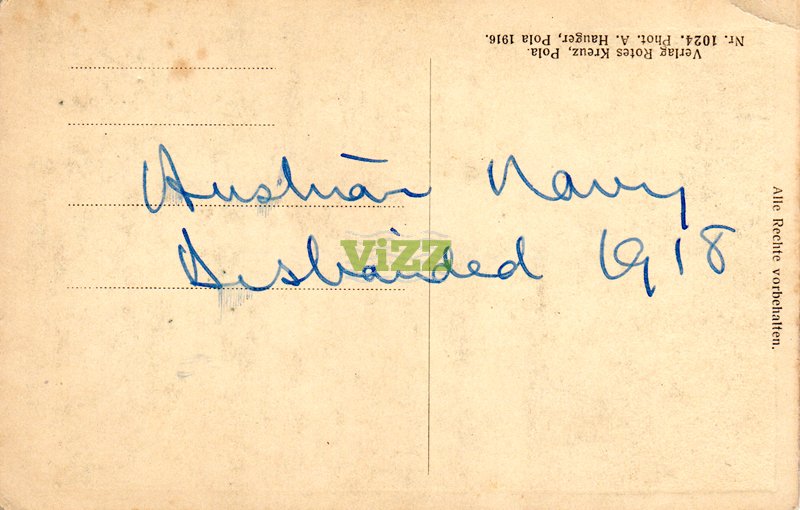 Verlag Rotes Kreuz, Pola.
Nr. 1024. Phot. A. Hauger, Pola 1916.
Austrian Navy
Disbanded 1918
ViZZ
Alle Rechte vorbehalten.